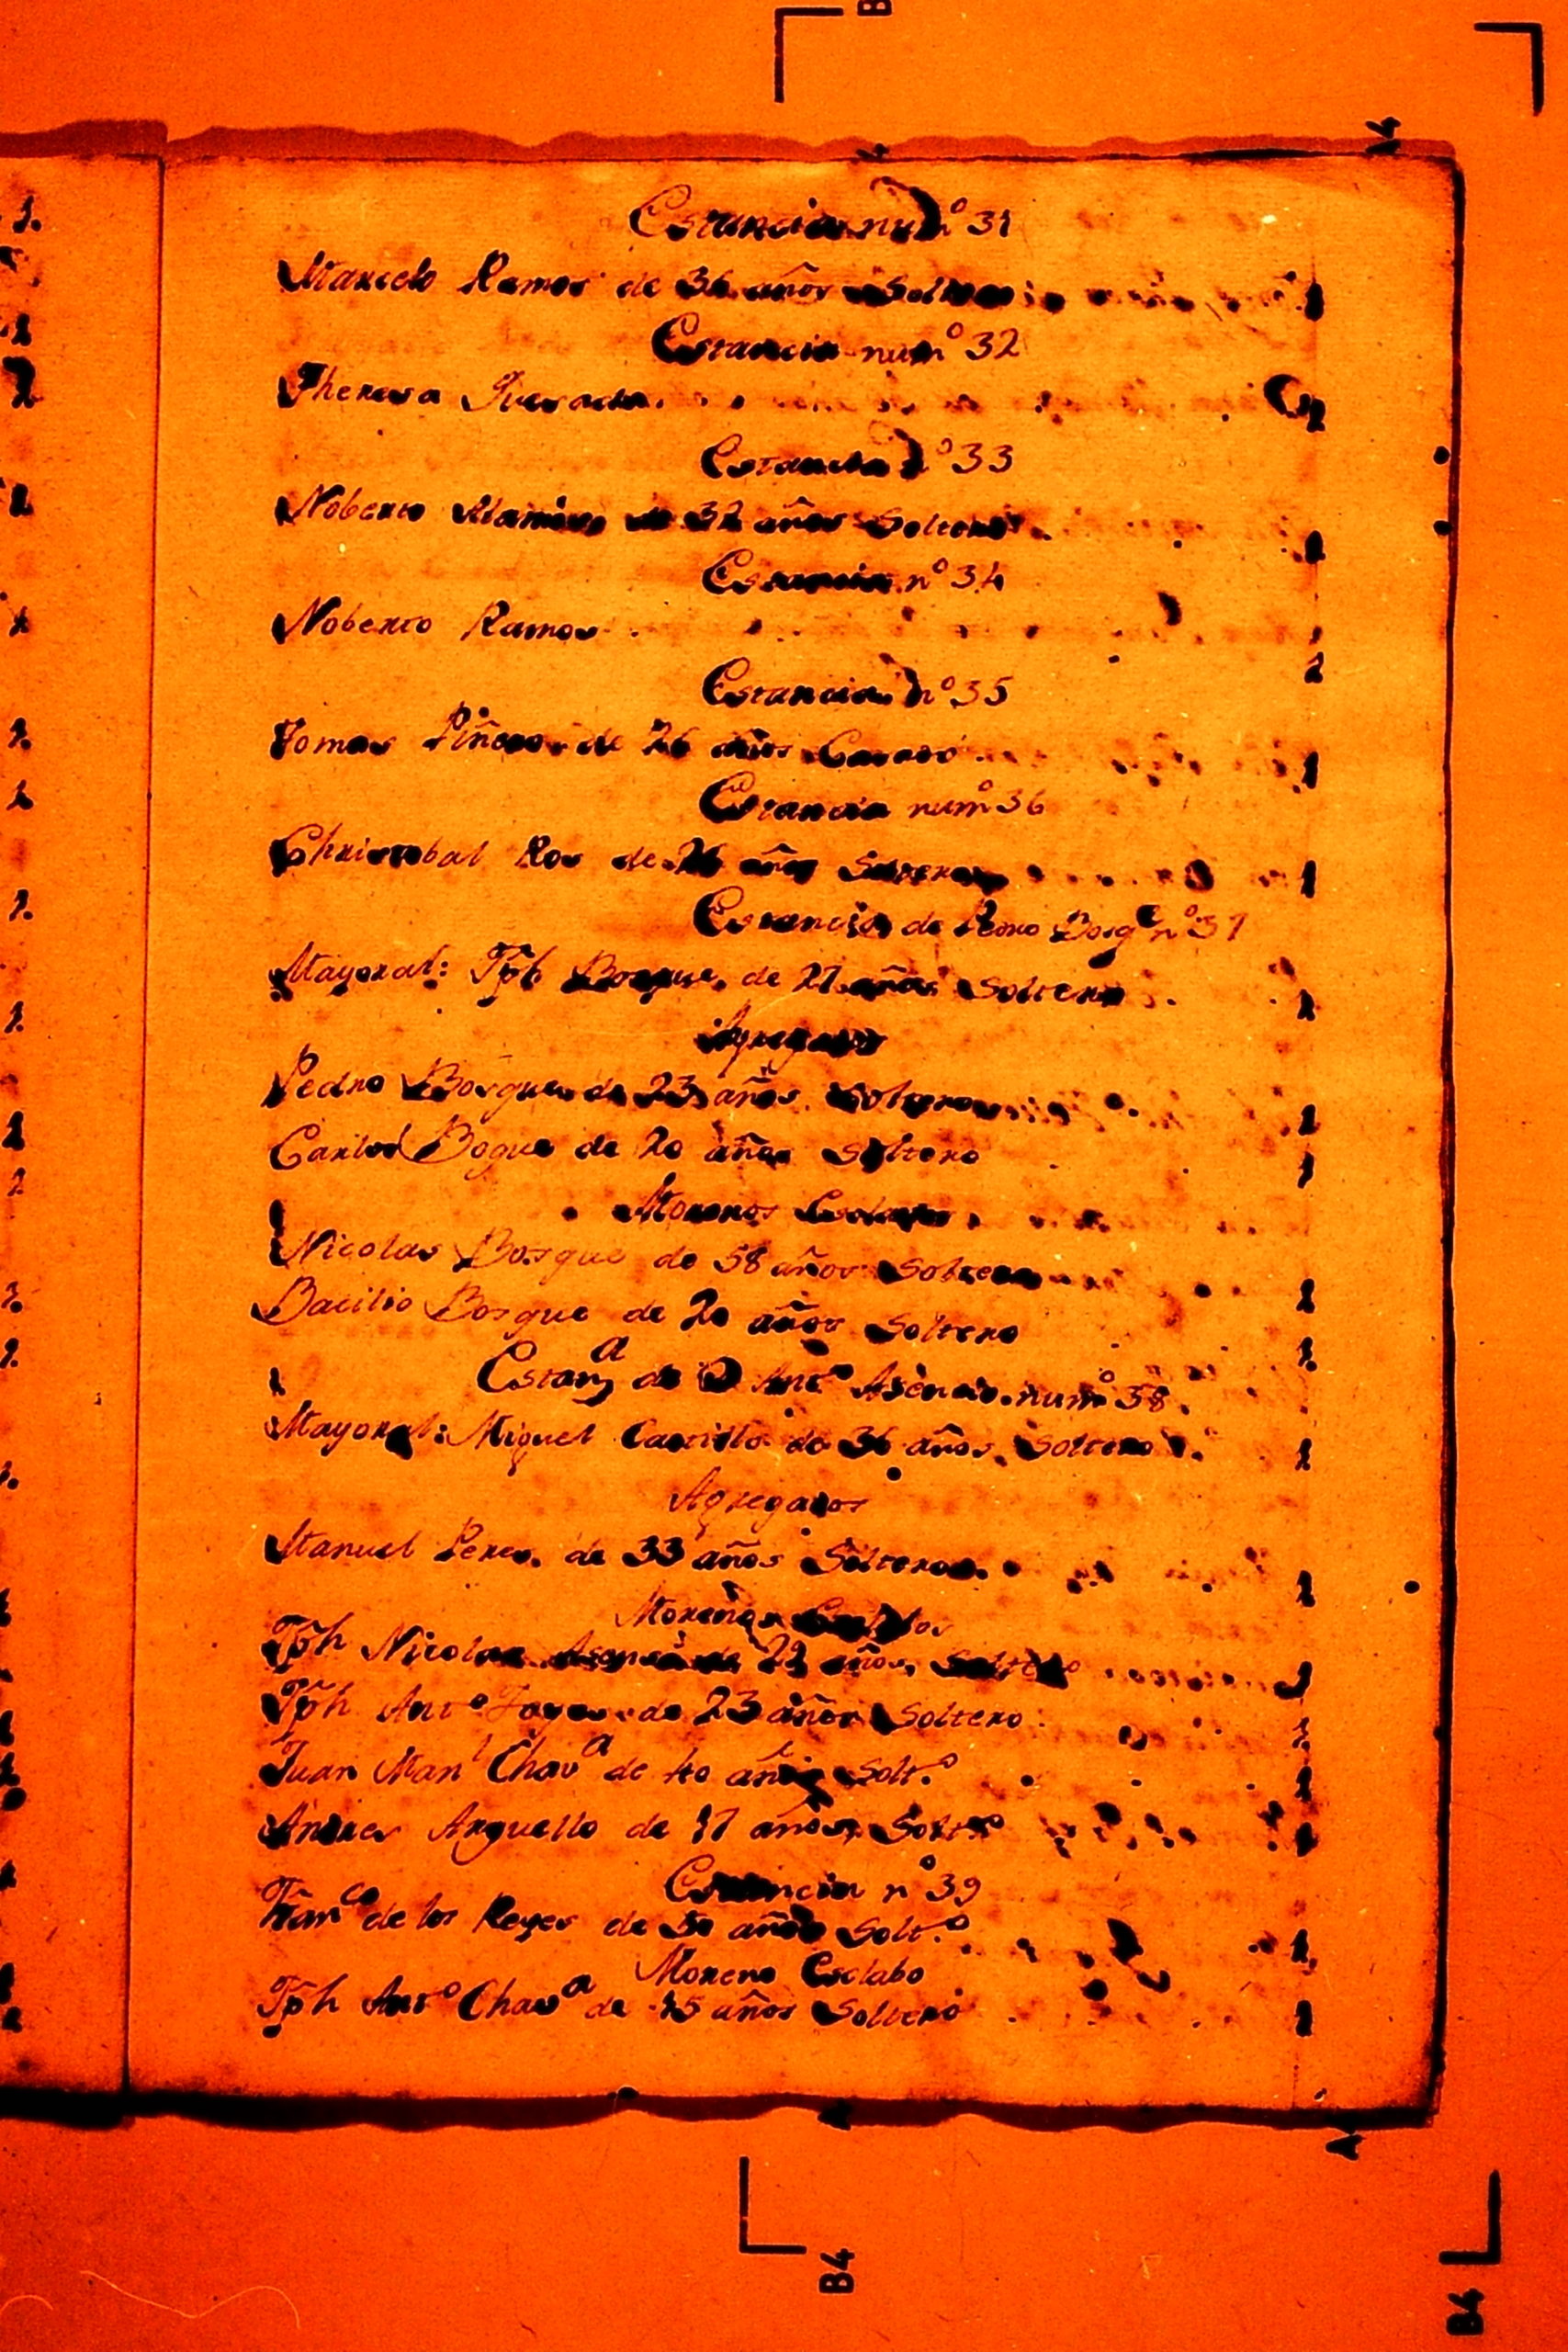 Estancia num.º 31
Marcelo Ramos de 36 años Soltero 1
Estancia num.º 32
Theresa
Estancia nº 33
Noberto de 32 años Soltero 1
Estancia nº 34
Noberto Ramos 1
Estancia nº 35
Tomas Piñero de 26 años Casado 1
Estancia num.º 36
Christobal Ros de 26 años Soltero 1
Estancia de Pedro Bosq.e nº 37
Mayoral: Jph Bosque, de 27 años Soltero 1
Agregados
Pedro Bosque de 23 años Soltero 1
Carlos Bogue de 20 años Soltero 1
Morenos Esclavos
Nicolas Bosque de 58 años Soltero 1
Bacilio Bosque de 20 años Soltero 1
Estanª de D Antº Asencio num.º 38
Mayoral: Miguel Castillo de 36 años, Soltero 1
Agregados
Manuel Peres, de 33 años Soltero 1
Morenos
Jph Nicolas Asencio de 29 años, Soltero 1
Jph Antº de 23 años Soltero 1
Juan Manl Chavª de 40 años Solt.º 1
Andres Arguello de 17 años Solt.º 1
Estancia nº 39
Franco de los Reyes de 50 años Solt.º 1
Moreno Esclabo
Jph Antº Chavª de 45 años Soltero 1
B4
B4